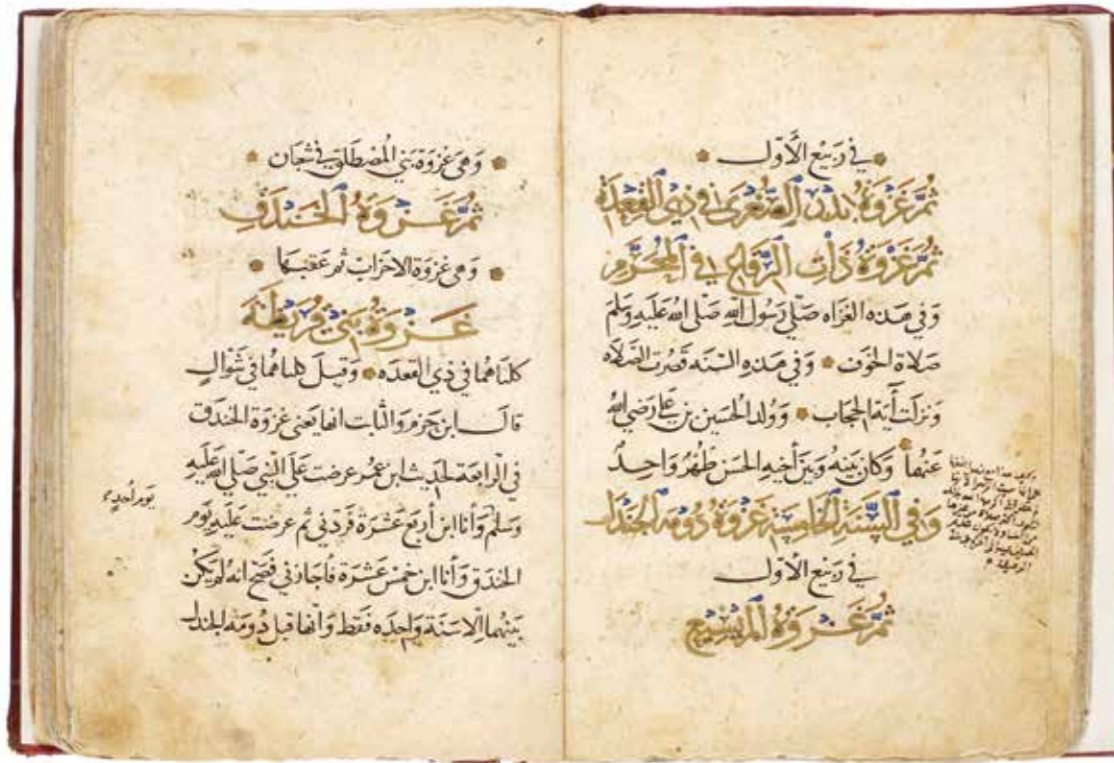 في ربيع الأوّل
ثمّ غزوة بدر الصّغرى في ذي القعدة
ثمّ غزوة ذات الرّقاع في المحرّم
وفي هذه الغزاه صلّى رسول الله صلّى الله عليه وسلم
صلاة الخوف وفي هذه السّنه قصرت الصّلاه
ونزلت أية الحجاب وولد الحسين بن علي رضي الله
عنهما وكان بينه وبين أخيه الحسن طهر واحد
وفي السّنة الخامسة غزوة دومة الجندل
في ربيع الأول
ثمّ غزوة المريسيع
وهى غزوة بني المصطلق في شعبان
ثمّ غزوة الخندق
وهى غزوة الاحزاب ثم عقبها
غزوة بني قريظة
كلتاهما في ذي القعده وقيل كلتاهما في شوّال
قال ابن حزم والثابت انها يعني غزوة الخندق
في الرابعة لحديث ابن عمر عرضت على النّبي صلّى الله عليه
وسلم وأنا ابن أربع عشرة فردّني ثم عرضت عليه يوم
الخندق وأنا ابن خمس عشرة فاجازني فصح انه لم يكن
بينهما الا سنة واحده فقط وانّها قبل دومة الجندل
يوم أحد